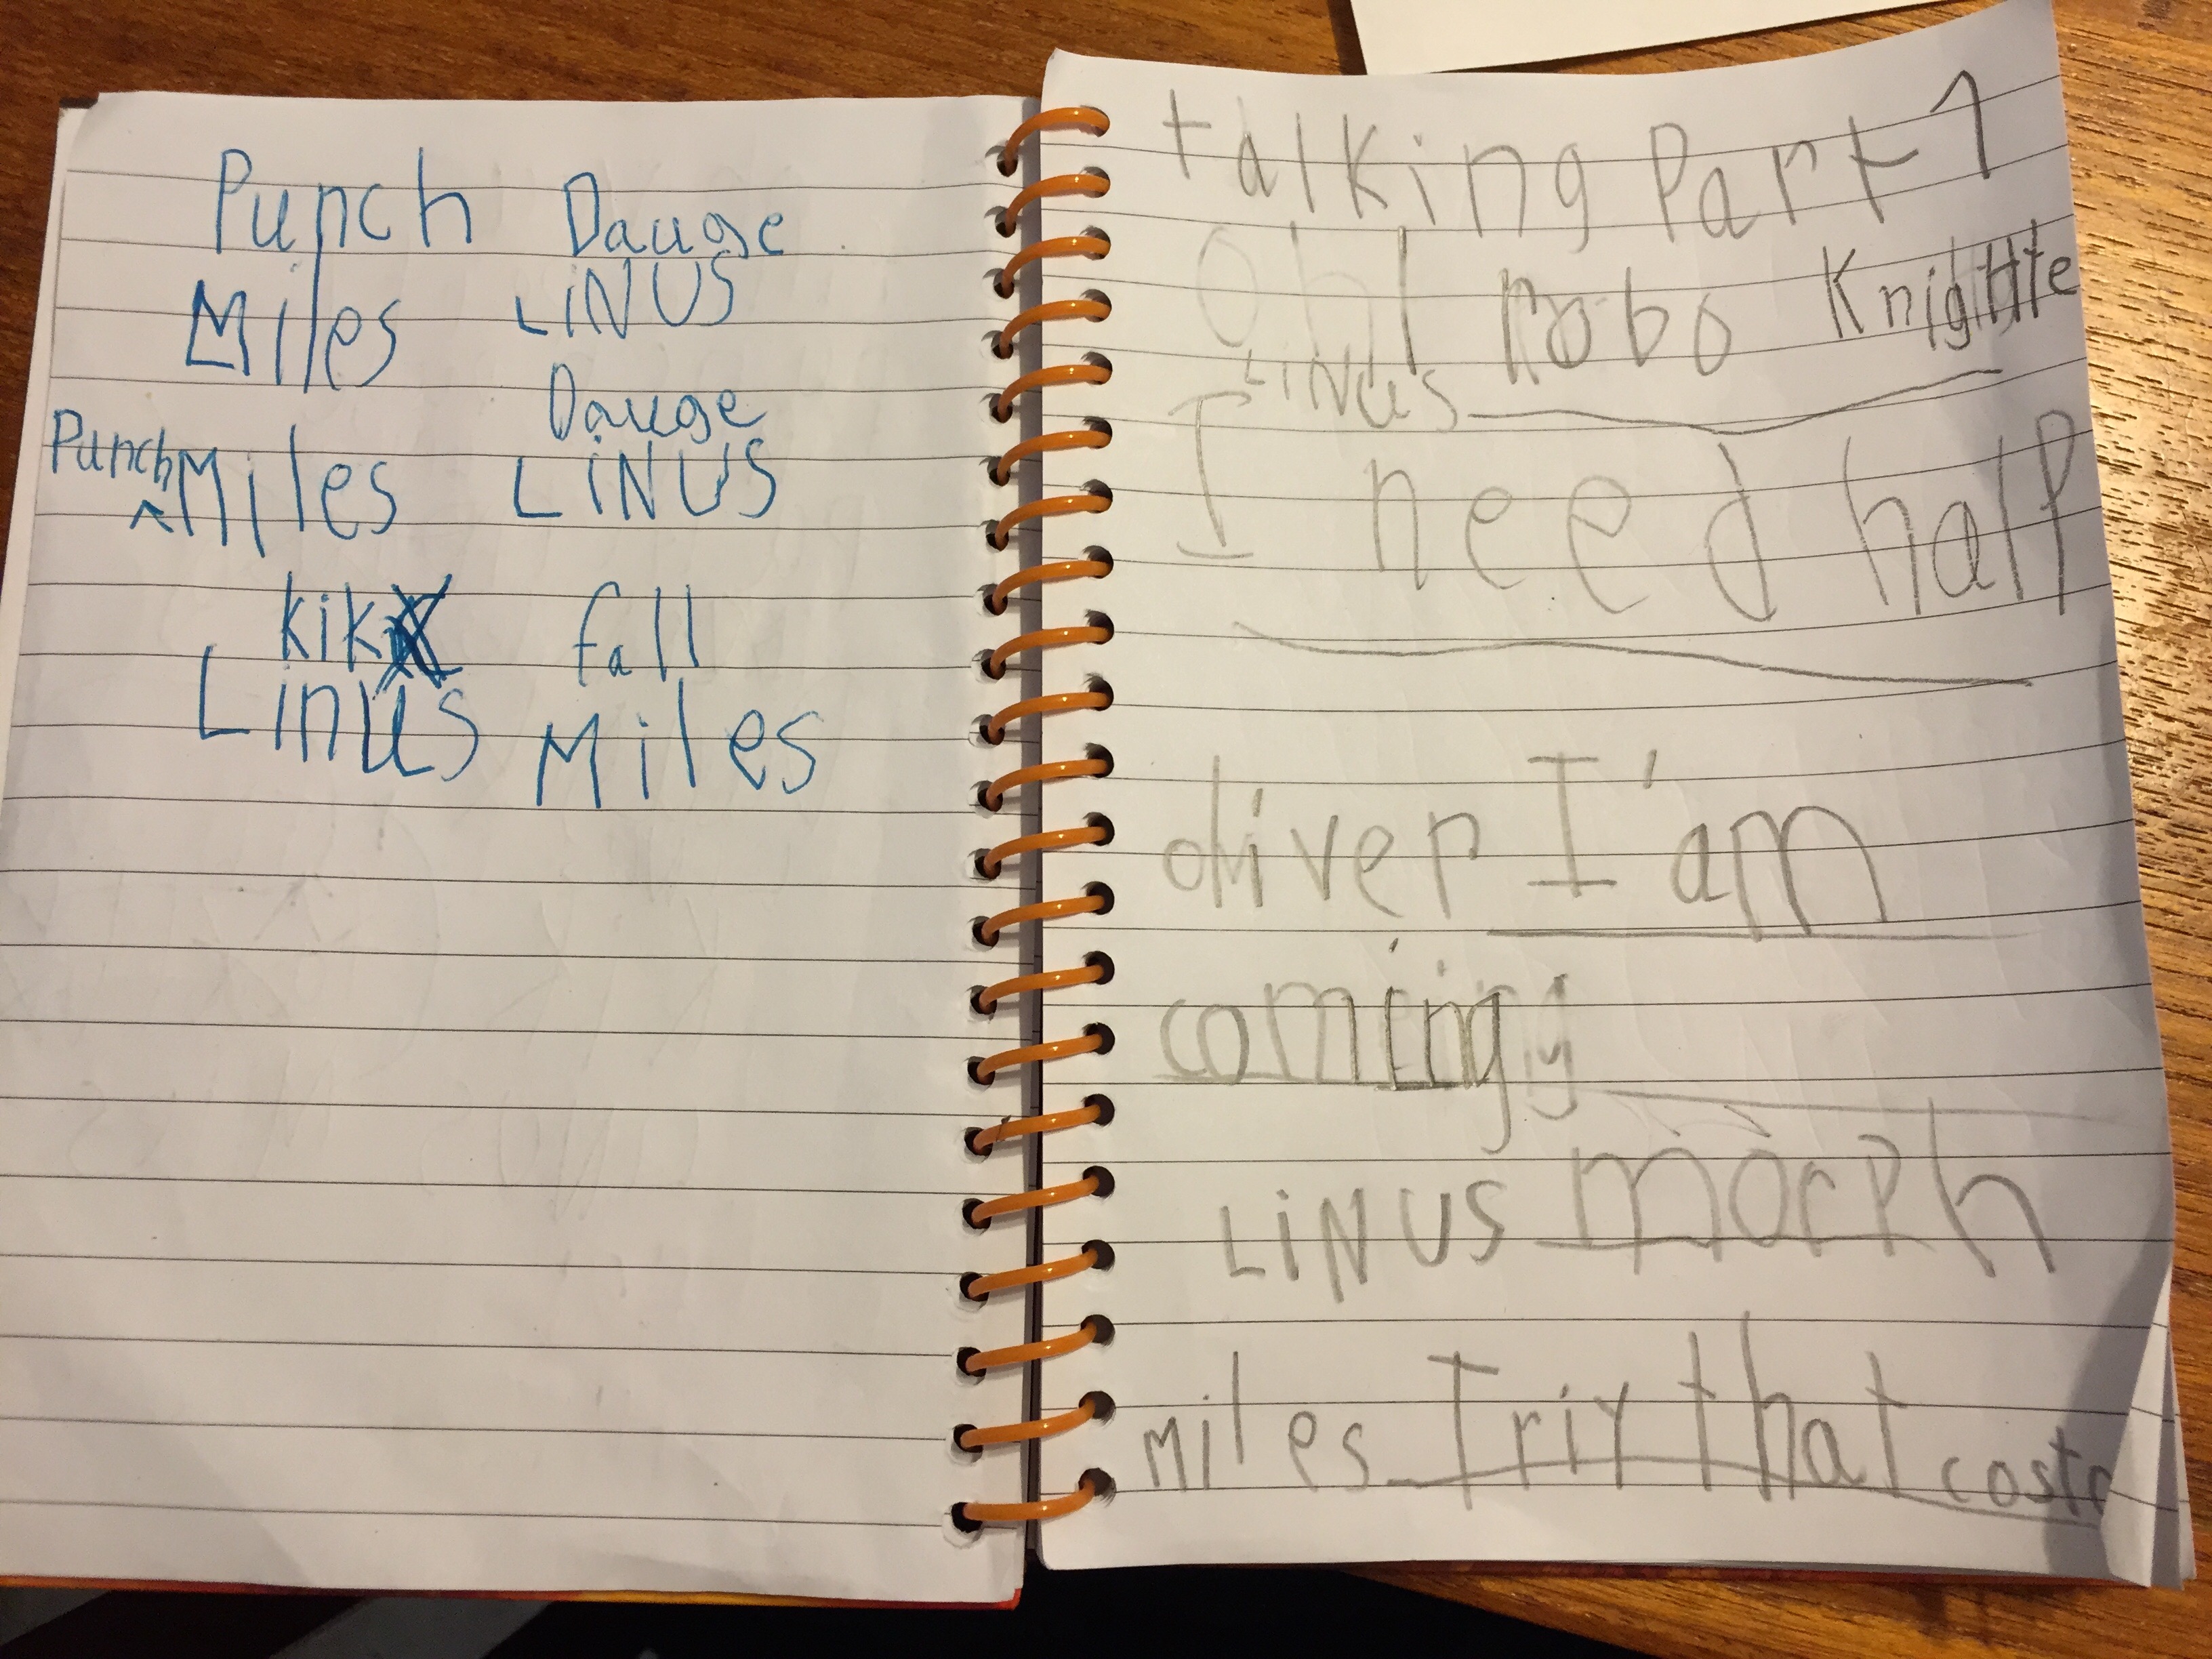 Punch Dauge
Miles LiNUS
Dauge
Punch Miles LiNUS
kik fall
Linus Miles
talking Part 1
Oh! robo Knight
LiNUS
I need half
driver I'am
coming
LiNUS morph
Miles Triy that